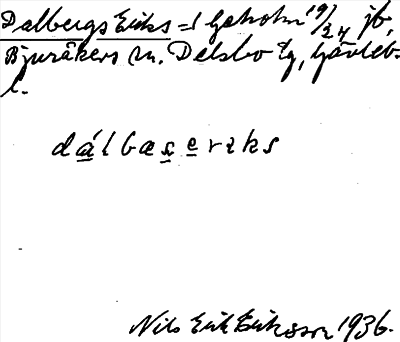 Dalbergs Eriks = Ygsholm 19/24 jb,
Bjuråkers sn. Delsbo tg, Gävleb.
l.
dálbaserıks
Nils Erik Eriksson 1936.